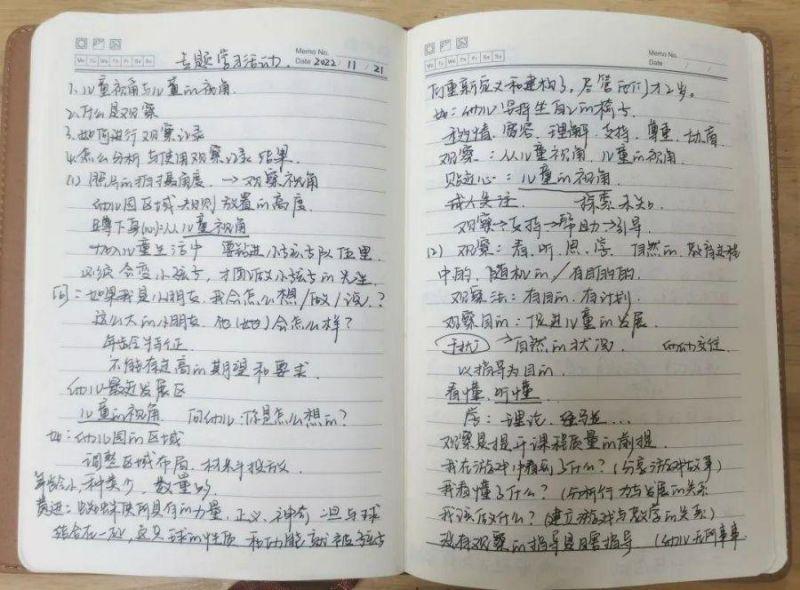 Memo No.
Mo Tu We Th Fr Sa Su
Date 2022/11/21
专题学习活动.
1.儿童视角与儿童的视角.
2.什么是观察
3.如何进行观察记录
4.怎么分析与使用观察记录结果.
(1) 照片的拍摄角度. → 观察视角
幼儿园区域规则放置的高度.
蹲下身(心)从儿童视角
加入儿童生活中 要钻进小孩子队伍里.
必须会变小孩子, 才因做小孩子的先生.
问:如果我是小朋友,我会怎么想/做/说.?
这么大的小朋友.他(她)会怎么样?
年龄特征.
不能有过高的期望和要求.
幼儿最近发展区
儿童的视角 问幼儿:你是怎么想的?
如:幼儿园的区域
调整区域布局.材料投放.
年龄小,种类少.数量多
黄进: 所具有的力量.正义.神奇 一旦与球
结合在一起,这只球的性质和功能就被孩子
Memo No.
Mo Tu We Th Fr Sa Su
Date / /
们重新定义和建构了.尽管他们才2岁.
如:幼儿坚持坐自己的椅子.
宽容.理解.支持.尊重.
观察:从儿童视角.儿童的视角.
贴近心:儿童的视角.
成人关注. 探索未知.
观察→支持→帮助→引导.
(2) 观察:看、听、思、学. 自然的.教育过程
中的.随机的/有目的的.
观察法:有目的.有计划.
观察目的:促进儿童的发展.
干扰→自然的状况.
以指导为目的.
看懂.听懂.
理论.经验...
观察是提升课程质量的前提.
我在游戏中看到了什么?(分享游戏故事)
我看懂了什么?(分析行为与发展的关系
我该做什么?(建立游戏与教学的关系)
没有观察的指导是瞎指导 (幼儿无所事事